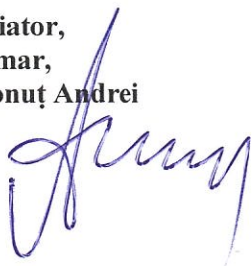 iator,
mar,
onuț Andrei